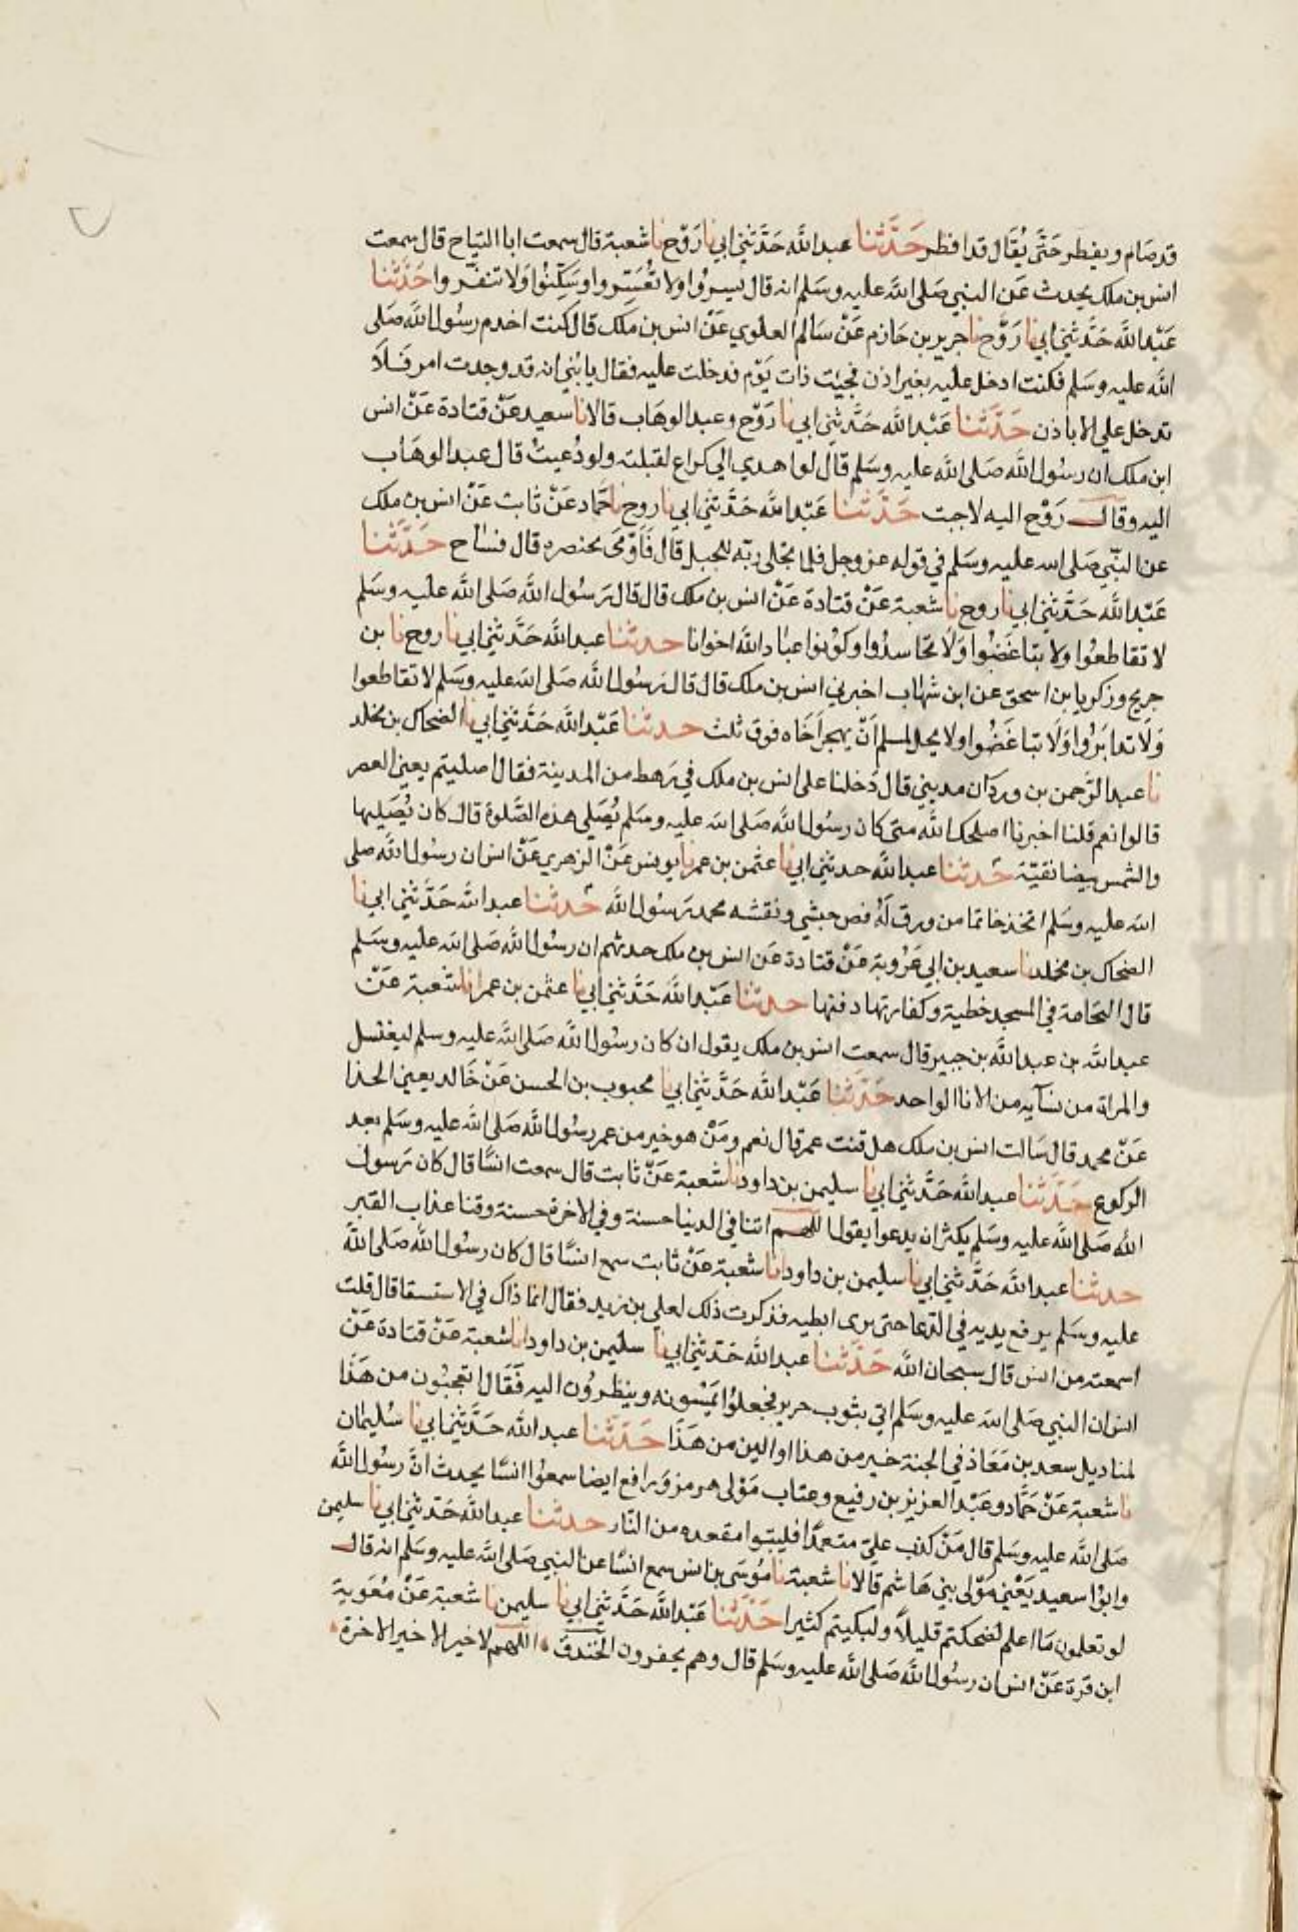 قد صَام ويفطر حَتَّى يُقَال قد افطر حَدَّثنا عبد الله حَدَّثني ابي نا رَوْح نا شعبة قال سمعت ابا التياح قال سمعت
انس بن ملك يحدث عَن النبي صَلى الله عليه وسَلم انه قال يسروُا ولا تُعَسِّروا وسَكِّنُوا وَلا تنفّروا حَدَّثنا
عَبْد الله حَدَّثني ابي نا رَوْح نا جرير بن حَازم عَنْ سَالم العلوي عَنْ انس بن ملك قال كنت اخدم رسُول الله صَلى
الله عليه وسَلم فكنت ادخل عليه بغير اذن فجيت ذات يَوْم فدخلت عليه فقال يا بُني انه قد وجدت امر فَلا
تدخل علي الا باذن حَدَّثنا عَبْد الله حَدَّثني ابي نا رَوْح وعبد الوهاب قالا نا سعيد عَنْ قتادة عَنْ انس
ابن ملك ان رسُول الله صَلى الله عليه وسَلم قال لو اهدي الي كراع لقبلته ولو دُعيتُ قال عبد الوهَاب
اليه وقال رَوْح اليه لاجبت حَدَّثنا عَبْد الله حَدَّثني ابي نا روح نا حَمَّاد عَنْ ثابت عَنْ انس بن ملك
عن النبّي صَلى الله عليه وسَلم في قوله عز وجل فلما تجلى ربّه للجبل قال فَأومَى بخنصره قال فسَاح حَدَّثنا
عَبْد الله حَدَّثني ابي نا روح نا شعبة عَنْ قتادة عَنْ انس بن ملك قال قال رَسُول الله صَلى الله عليه وسَلم
لا تقاطعُوا ولا تباغضُوا وَلا تحاسدُوا وكوُنوا عبَاد الله اخوانا حدثنا عبد الله حَدَّثني ابي نا روح نا بن
جريج وزكريا بن اسحق عن ابن شهَاب اخبرني انس بن ملك قال قال رَسُول الله صَلى الله عليه وسَلم لا تقاطعوا
وَلا تدابَرُوا وَلا تباغَضُوا ولا يحل لمسلم اَنْ يهجر اَخَاه فوق ثلث حدثنا عَبْد الله حَدَّثني ابي نا الضحاك بن مخلد
نا عبد الرَّحمن بن وردَان مديني قال دَخلنا على انس بن ملك في رَهط من المدينة فقال اصليتم يعني العصر
قالوا نعم قلنا اخبرنا اصلحك الله متى كان رسُول الله صَلى الله عليه وسَلم يُصَلي هذه الصَّلوة قال كان يُصَليها
والشمس بيضا نقيّة حَدثنا عبد الله حدثني ابي نا عثمن بن عمر نا يونس عَنْ الزهري عَنْ انس ان رسُول الله صلى
الله عليه وسَلم اتخذ خاتما من ورق لَهُ فص حبشي ونقشه محمد رَسُول الله حَدثنا عبد الله حَدَّثني ابي نا
الضحاك بن مخلد نا سعيد بن ابي عَرُوبة عَنْ قتادة عَن انس بن ملك حدثهم ان رسُول الله صَلى الله عليه وسَلم
قال النخامة في المسجد خطية وكفارتها دفنها حدثنا عَبْد الله حَدَّثني ابي نا عثمن بن عمر انا شعبة عَنْ
عبد الله بن عبد الله بن جبير قال سمعت انس بن ملك يقول ان كان رسُول الله صَلى الله عليه وسلم ليغتسل
والمراة من نسآيه من الانا الواحد حَدَّثنا عَبْد الله حَدَّثني ابي نا محبوب بن الحسن عَنْ خَالد يعني الحذا
عَنْ محمد قال سَالت انس بن ملك هل قنت عمر قال نعم ومَنْ هو خير من عمر رسُول الله صَلى الله عليه وسَلم بعد
الركوع حَدَّثنا عبد الله حَدَّثني ابي نا سليمن بن داود نا شعبة عَنْ ثابت قال سمعت انسًا قال كان رَسول
الله صَلى الله عليه وسَلم يكثر ان يدعوا يقول اللهم اتنا في الدنيا حسنة وفي الاخرة حسنة وقنا عذاب القبر
حدثنا عبد الله حَدَّثني ابي نا سليمن بن داود انا شعبة عَنْ ثابت سمع انسًا قال كان رسُول الله صَلى الله
عليه وسَلم يرفع يديه في الدعا حتى يرى ابطيه فذكرت ذلك لعلي بن زيد فقال انما ذاك في الاستسقا قال قلت
اسمعته من انس قال سبحان الله حَدَّثنا عبد الله حَدثني ابي نا سليمن بن داود انا شعبة عَنْ قتادة عَنْ
انس ان النبي صَلى الله عليه وسَلم اتي بثوب حرير فجعلوُا يَمَسّونه وينظروُن اليه فَقَال اتعجبُون من هَذا
لمناديل سعد بن مَعَاذ في الجنة خير من هذا او الين من هَذَا حَدَّثنا عبد الله حَدَّثني ابي نا سُليمَان
نا شعبة عَنْ حَمَّاد وعَبْد العزيز بن رفيع وعتاب مَوْلى هرمز وَرافع ايضا سمعوُا انسًا يحدث انَّ رسُول الله
صَلى الله عليه وسَلم قال مَنْ كذب عليّ متعمدًا فليتبوا مقعده من النّار حدثنا عبد الله حَدَّثني ابي نا سليمن
وابوُا سعيد يَعْني مَوْلى بني هَاشم قالا نا شعبة نا مُوسَى بن انس سمع انسًا عن النبي صَلى الله عليه وسَلم انه قال
لو تعلمون مَا اعلم لضحكتم قليلاً ولبكيتم كثيرا حَدَّثنا عَبْد الله حَدَّثني ابي نا سليمن نا شعبة عَنْ مُعَوية
ابن قرة عَنْ انس ان رسُول الله صَلى الله عليه وسَلم قال وهم يحفرون الخندق اللهم لا خير الا خير الاخرة